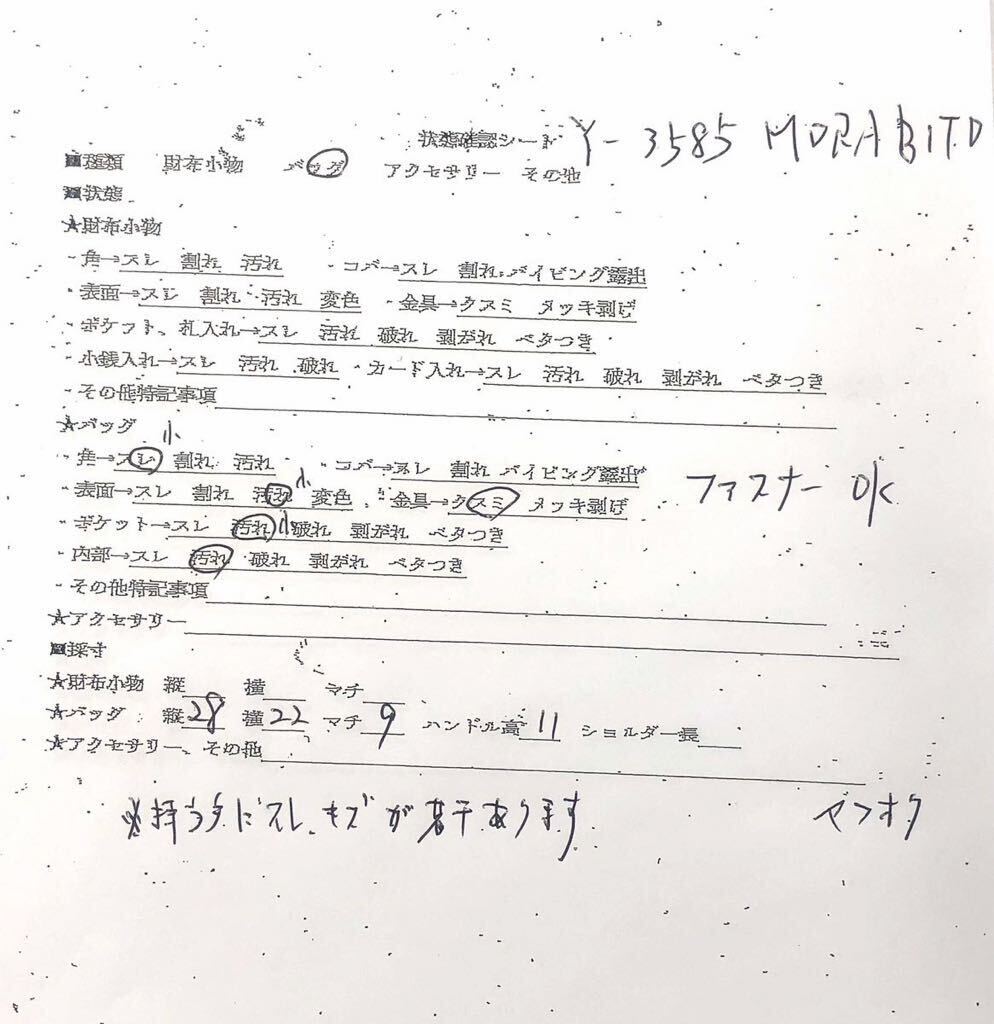 状態確認シード Y-3585 MORABITO
■種類 財布小物 バッグ アクセサリー その他
■状態
★財布小物
・角→スレ 割れ 汚れ ・コバ→スレ 割れ パイピング露出
・表面→スレ 割れ 汚れ 変色 ・金具→クスミ メッキ剥げ
・ポケット、札入れ→スレ 汚れ 破れ 剥がれ ベタつき
・小銭入れ→スレ 汚れ 破れ ・カード入れ→スレ 汚れ 破れ 剥がれ ベタつき
・その他特記事項
★バッグ 小
・角→スレ 割れ 汚れ ・コバ→スレ 割れ パイピング露出
・表面→スレ 割れ 汚れ 小 変色 ・金具→クスミ メッキ剥げ ファスナー OK
・ポケット→スレ 汚れ 小 破れ 剥がれ ベタつき
・内部→スレ 汚れ 破れ 剥がれ ベタつき
・その他特記事項
★アクセサリー
■採寸
★財布小物 縦 横 マチ
★バッグ 縦 28 横 22 マチ 9 ハンドル高 11 ショルダー長
★アクセサリー、その他
※持ち手にスレ、キズが若干あります ヤフオク